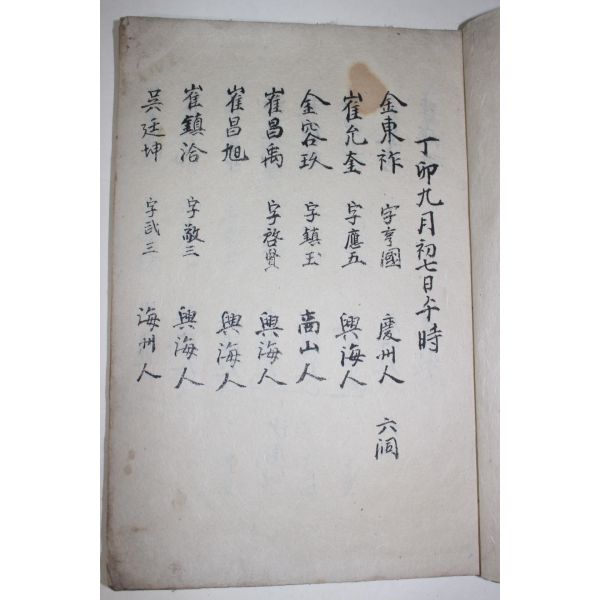 丁卯九月初七日午時
金東祚 字亨國 慶州人 六洞
崔允奎 字應五 興海人
金容玖 字鎮玉 商山人
崔昌禹 字啓賢 興海人
崔昌旭 興海人
崔鎮洽 字敬三 興海人
吳廷坤 字武三 海州人